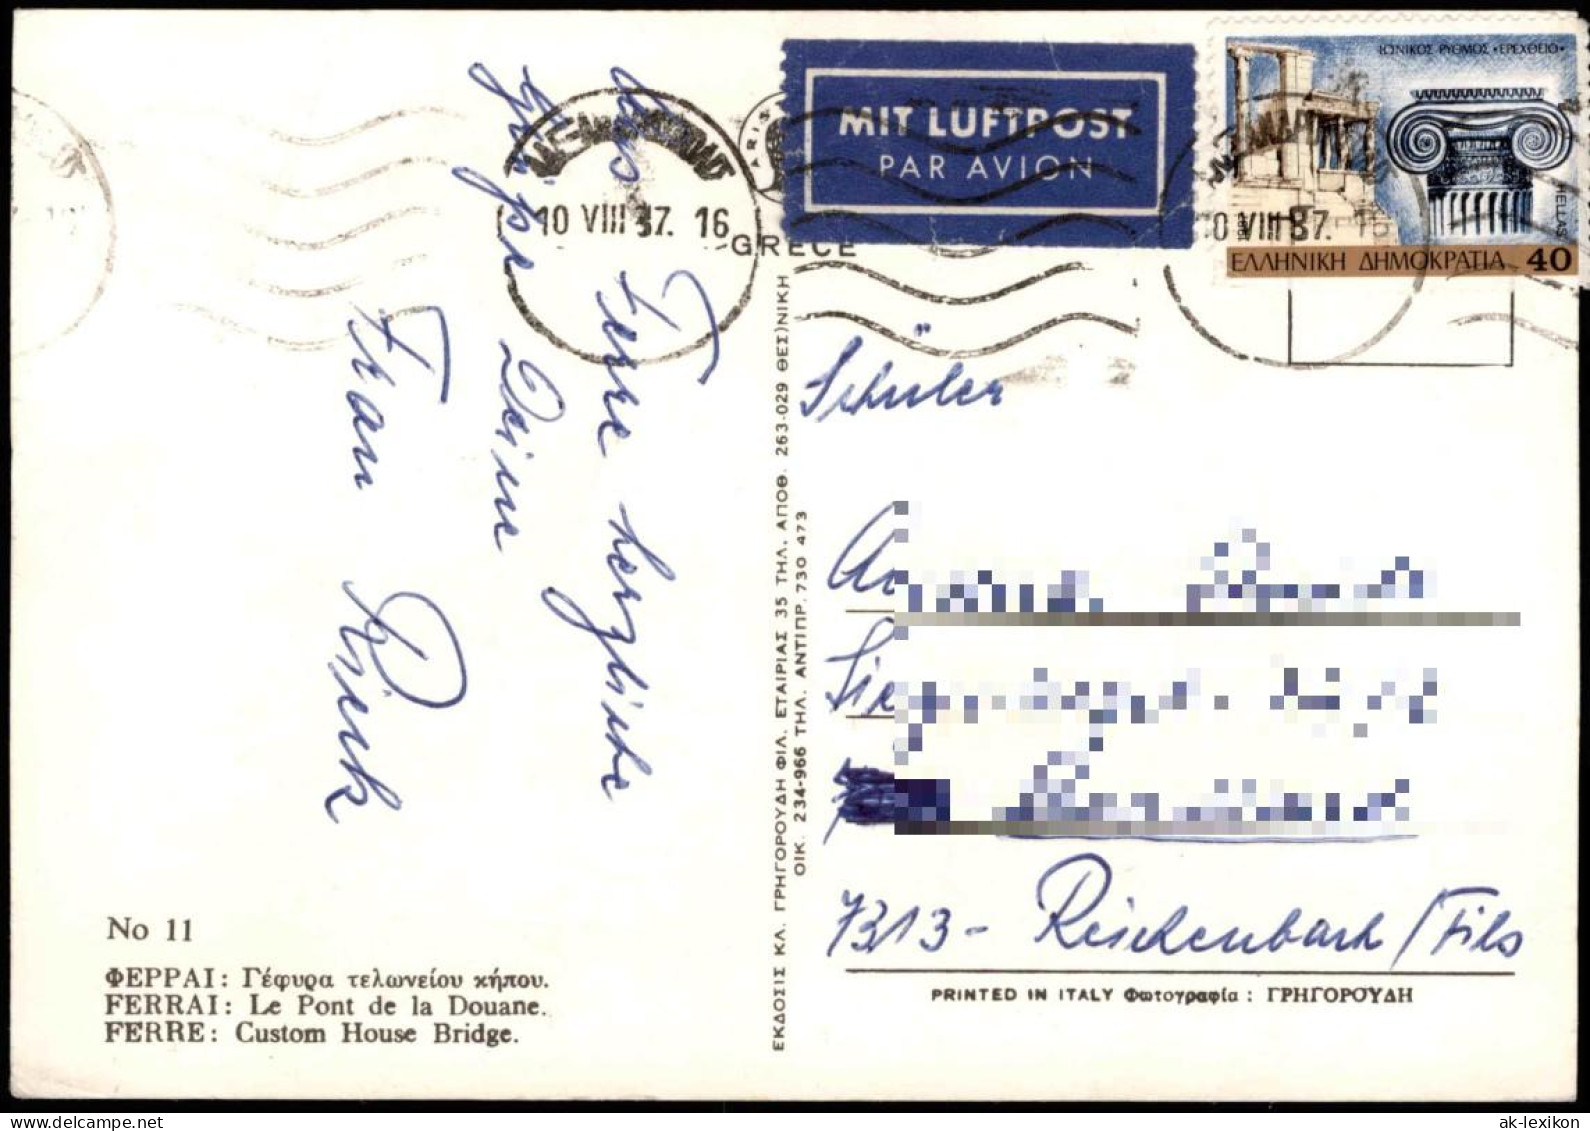 Aus Ferre herzliche
Grüße Deine
Frau Rieck
No 11
ΦΕΡΡΑΙ: Γέφυρα τελωνείου κήπου.
FERRAI: Le Pont de la Douane.
FERRE: Custom House Bridge.
ΕΚΔΟΣΙΣ ΚΛ. ΓΡΗΓΟΡΟΥΔΗ ΦΙΛ. ΕΤΑΙΡΙΑΣ 35 ΤΗΛ. ΑΠΟΘ. 263-029 ΘΕΣ)ΝΙΚΗ
ΟΙΚ. 234-966 ΤΗΛ. ΑΝΤΙΠΡ. 730 473
10 VIII 87. 16
GRECE
MIT LUFTPOST
PAR AVION
ΙΩΝΙΚΟΣ ΡΥΘΜΟΣ «ΕΡΕΧΘΕΙΟ»
HELLAS
ΕΛΛΗΝΙΚΗ ΔΗΜΟΚΡΑΤΙΑ 40
10 VIII 87. 16
Schüler
7313 - Reichenbach/Fils
PRINTED IN ITALY Φωτογραφία : ΓΡΗΓΟΡΟΥΔΗ
ak-lexikon